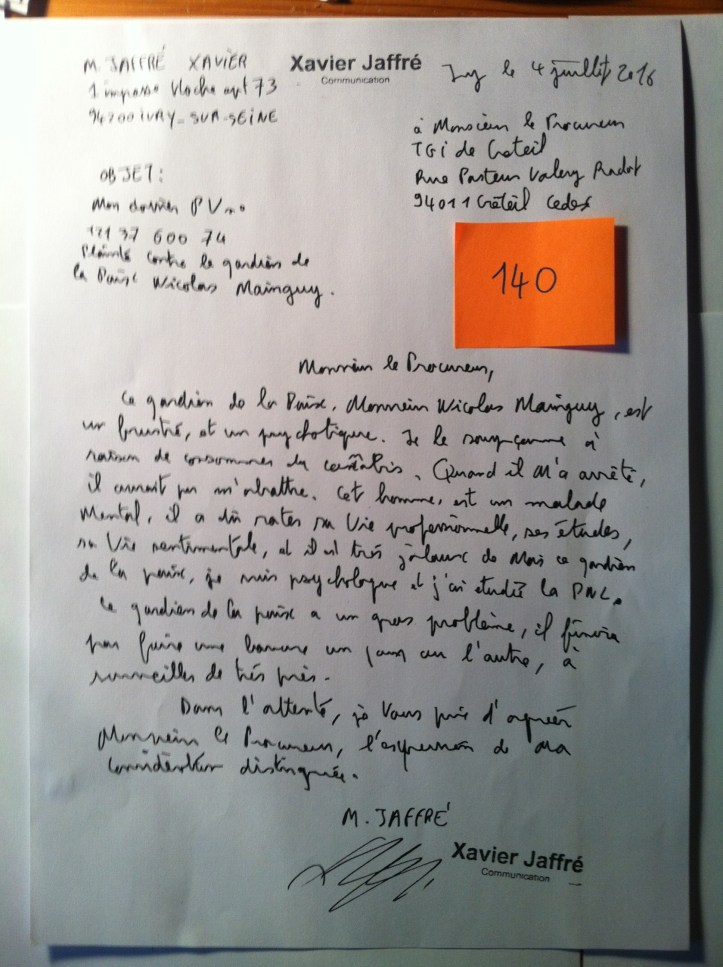 M. JAFFRÉ XAVIER
1 impasse Vloha apt 73
94200 IVRY-SUR-SEINE
Xavier Jaffré
Communication
Ivry le 4 juillet 2016
à Monsieur le Procureur
TGI de Créteil
Rue Pasteur Valery Radot
94011 Créteil Cedex
OBJET:
Mon dossier PV n°
121 37 600 74
Plainte contre le gardien de
la Paix Nicolas Mainguy.
140
Monsieur le Procureur,
Ce gardien de la Paix, Monsieur Nicolas Mainguy, est
un frustré, et un psychotique. Je le soupçonne à
raison de consommer du cannabis. Quand il m'a arrêté,
il aurait pu m'abattre. Cet homme, est un malade
Mental, il a dû rater sa Vie professionnelle, ses études,
sa Vie sentimentale, et il est très jaloux de Moi ce gardien
de la paix, je suis psychologue et j'ai étudié la PNL.
Ce gardien de la paix a un gros problème, il finira
par faire une bavure un jour ou l'autre, à
surveiller de très près.
Dans l'attente, je Vous prie d'agréer
Monsieur le Procureur, l'expression de ma
considération distinguée.
M. JAFFRÉ
Xavier Jaffré
Communication